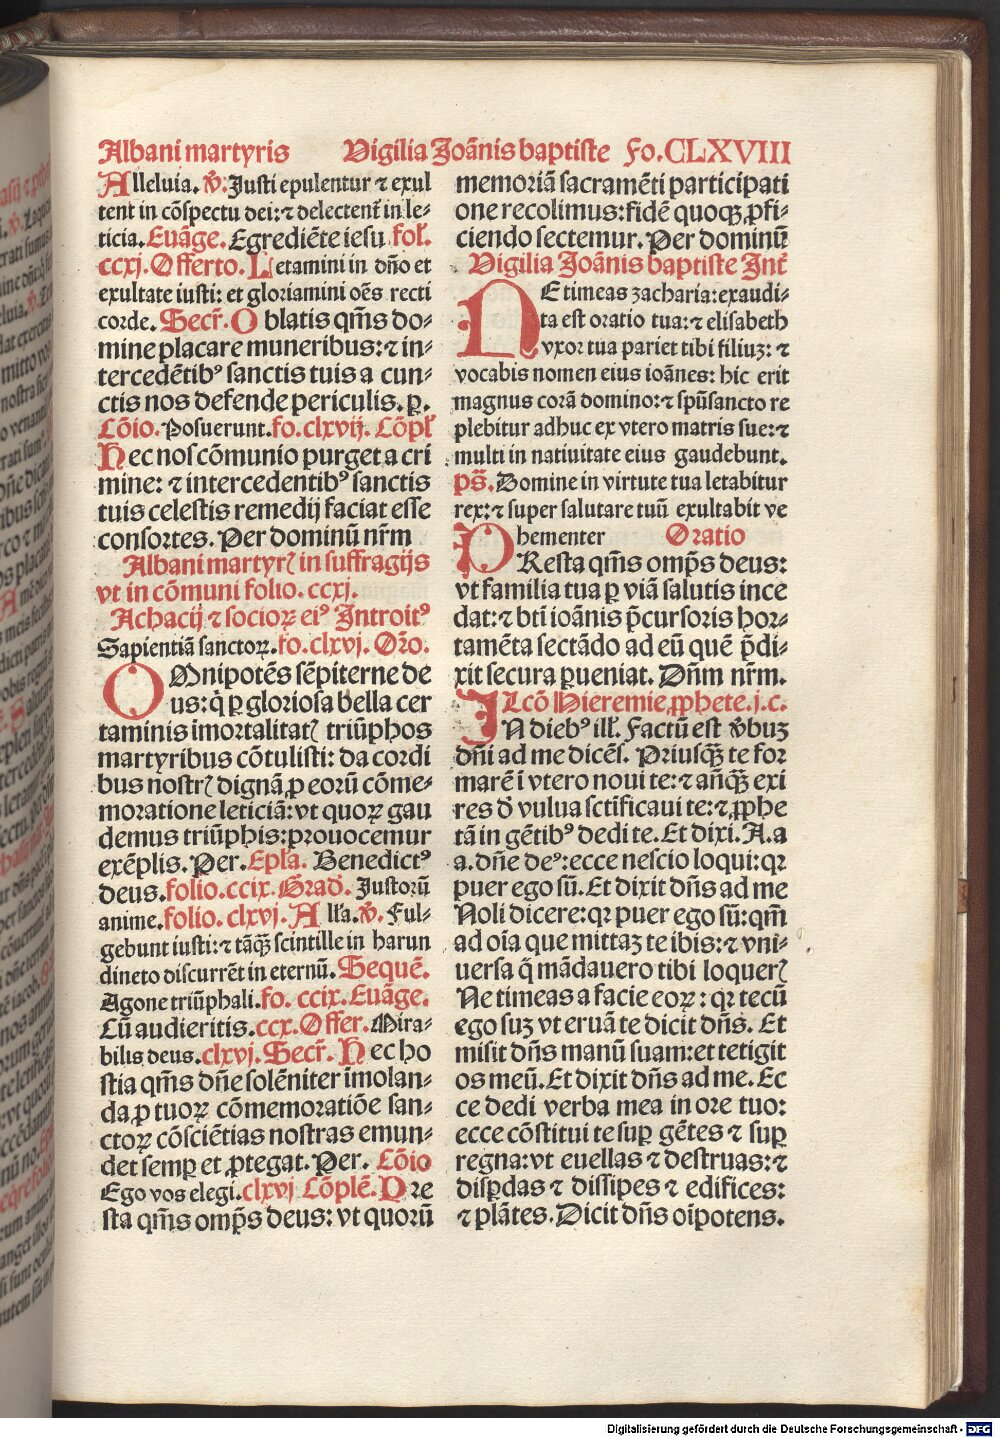 Albani martyris Vigilia Joãnis baptiste Fo. CLXVIII
Alleluia. v̄. Justi epulentur ⁊ exul
tent in cõspectu dei: ⁊ delectent᷑ in le⸗
ticia. Euãge. Egrediẽte iesu fol̃.
ccxj. Offerto. Letamini in dño et
exultate iusti: et gloriamini oẽs recti
corde. Secr̃. Oblatis qm̃s do⸗
mine placare muneribus: ⁊ in⸗
tercedẽtibꝰ sanctis tuis a cun⸗
ctis nos defende periculis. ꝑ.
Cõio. Posuerunt. fo. clxvij. Cõpl̃
Hec nos cõmunio purget a cri
mine: ⁊ intercedentibꝰ sanctis
tuis celestis remedij faciat esse
consortes. Per dominũ nr̃m
Albani martyrꝭ in suffragijs
vt in cõmuni folio. ccxj.
Achacij ⁊ socioꝝ eiꝰ Introitꝰ
Sapientiã sanctoꝝ. fo. clxvj. Oro.
OMnipotẽs sẽpiterne de
us: q̇ ꝑ gloriosa bella cer
taminis imortalitatꝭ triũphos
martyribus cõtulisti: da cordi
bus nostrꝭ dignã ꝓ eorũ cõme⸗
moratione leticiã: vt quoꝝ gau
demus triũphis: prouocemur
exẽplis. Per. Epl̃a. Benedictꝰ
deus. folio. ccix. Grad̃. Justorũ
anime. folio. clxvj. All̃a. v̄. Ful⸗
gebunt iusti: ⁊ tãqꝫ̃ scintille in harun
dineto discurrẽt in eternũ. Sequẽ.
Agone triũphali. fo. ccix. Euãge.
Cũ audieritis. ccx. Offer. Mira⸗
bilis deus. clxvj. Secr̃. Hec ho
stia qm̃s dñe solẽniter imolan⸗
da ꝓ tuoꝝ cõmemoratiõe san⸗
ctoꝝ cõsciẽtias nostras emun⸗
det semꝑ et ꝓtegat. Per. Cõio
Ego vos elegi. clxvj Cõplẽ. Pre
sta qm̃s omp̃s deus: vt quorũ
memoriã sacramẽti participati
one recolimus: fidẽ quoqꝫ ꝓfi⸗
ciendo sectemur. Per dominũ
Vigilia Joãnis baptiste Int̃
NE timeas zacharia: exaudi⸗
ta est oratio tua: ⁊ elisabeth
vxor tua pariet tibi filiuꝫ: ⁊
vocabis nomen eius ioãnes: hic erit
magnus corã domino: ⁊ spũsancto re
plebitur adhuc ex vtero matris sue: ⁊
multi in natiuitate eius gaudebunt.
ps̃. Domine in virtute tua letabitur
rex: ⁊ super salutare tuũ exultabit ve
hementer Oratio
PResta qm̃s omp̃s deus:
vt familia tua ꝑ viã salutis ince
dat: ⁊ bt̃i ioãnis p̃cursoris hor⸗
tamẽta sectãdo ad eũ quẽ p̃di⸗
xit secura ꝑueniat. Dñm nr̃m.
Lcõ Hieremie ꝓphete. j. c.
IN diebꝰ ill̃. Factũ est v̄buꝫ
dñi ad me dicẽs. Priusqꝫ̃ te for
marẽ ĩ vtero noui te: ⁊ añqꝫ̃ exi
res d̄ vulua sctificaui te: ⁊ ꝓphe
tã in gẽtibꝰ dedi te. Et dixi. A. a
a. dñe deꝰ: ecce nescio loqui: qꝛ
puer ego sũ. Et dixit dñs ad me
Noli dicere: qꝛ puer ego sũ: qm̃
ad oĩa que mittaꝫ te ibis: ⁊ vni⸗
uersa q̃ mãdauero tibi loquerꝭ
Ne timeas a facie eoꝝ: qꝛ tecũ
ego suꝫ vt eruã te dicit dñs. Et
misit dñs manũ suam: et tetigit
os meũ. Et dixit dñs ad me. Ec
ce dedi verba mea in ore tuo:
ecce cõstitui te suꝑ gẽtes ⁊ suꝑ
regna: vt euellas ⁊ destruas: ⁊
disꝑdas ⁊ dissipes ⁊ edifices:
⁊ plãtes. Dicit dñs oĩpotens.
Digitalisierung gefördert durch die Deutsche Forschungsgemeinschaft - DFG